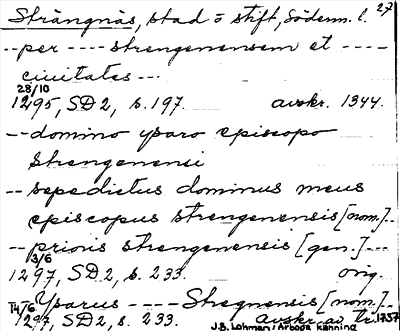 Strängnäs, stad o stift, Söderm. l. 27
-- per ---- strengenensem et ----
civitates ---
28/10
1295, SD 2, s. 197. avskr. 1344.
-- domino ysaro episcopo
Strengenensi
-- sepedictus dominus meus
episcopus strengenensis [nom.]
-- prioris strengenensis [gen.] --
3/6
1297, SD 2, s. 233. orig.
Ysarus ---- Stregnensis [nom.]
14/6
1297, SD 2, s. 233. avskr. av 1757
J.B. Lohman: Arboga känning